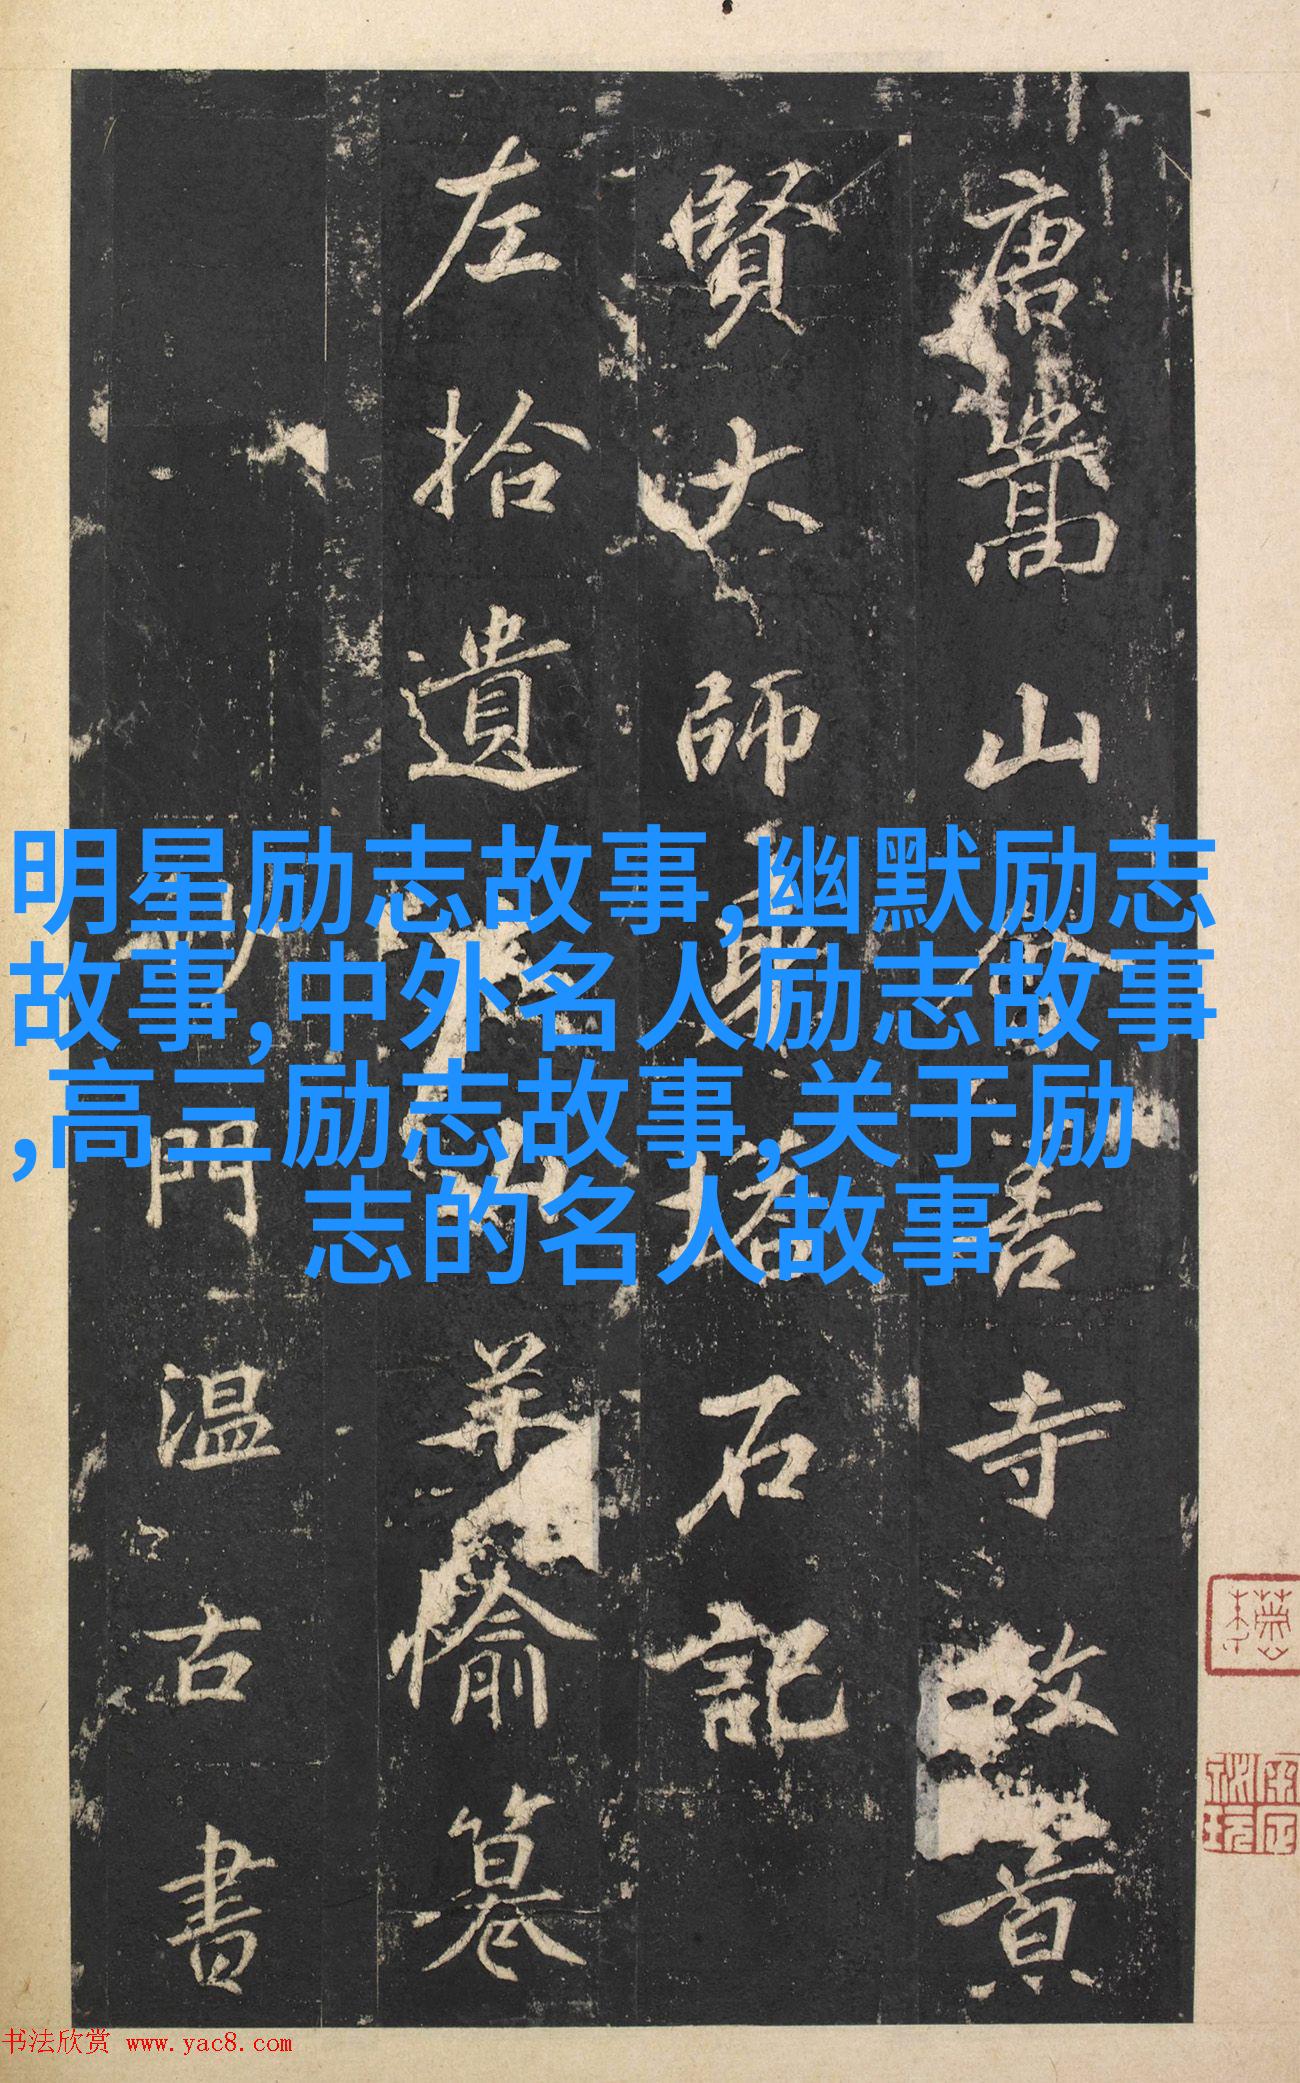 唐嵩山會善寺故景
賢大師身塔石記
左拾遺山羊愉纂
沙門溫古書
明星励志故事,幽默励志
故事,中外名人励志故事
,高三励志故事,关于励
志的名人故事
书法欣赏 www.yac8.com